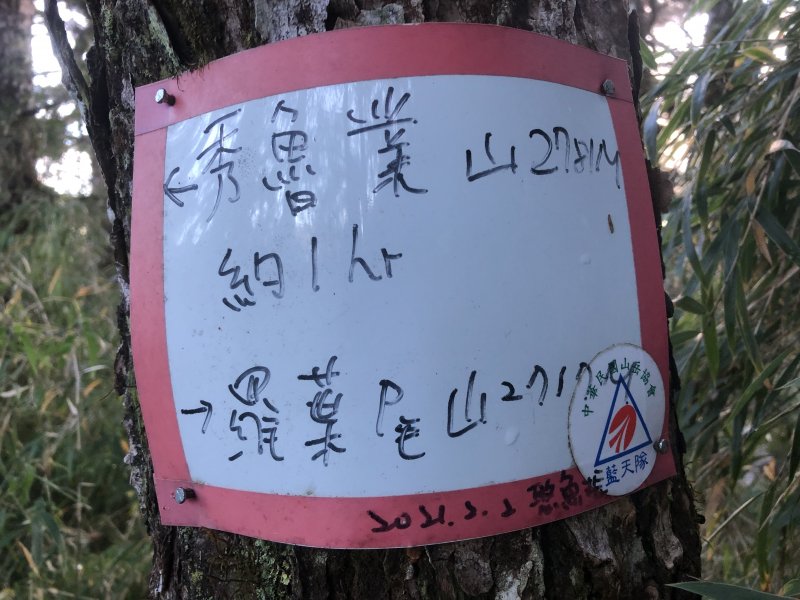 ←秀魯業山2781M
約1hr
→羅葉尾山271
中華民國山岳協會
藍天隊
2021.2.2